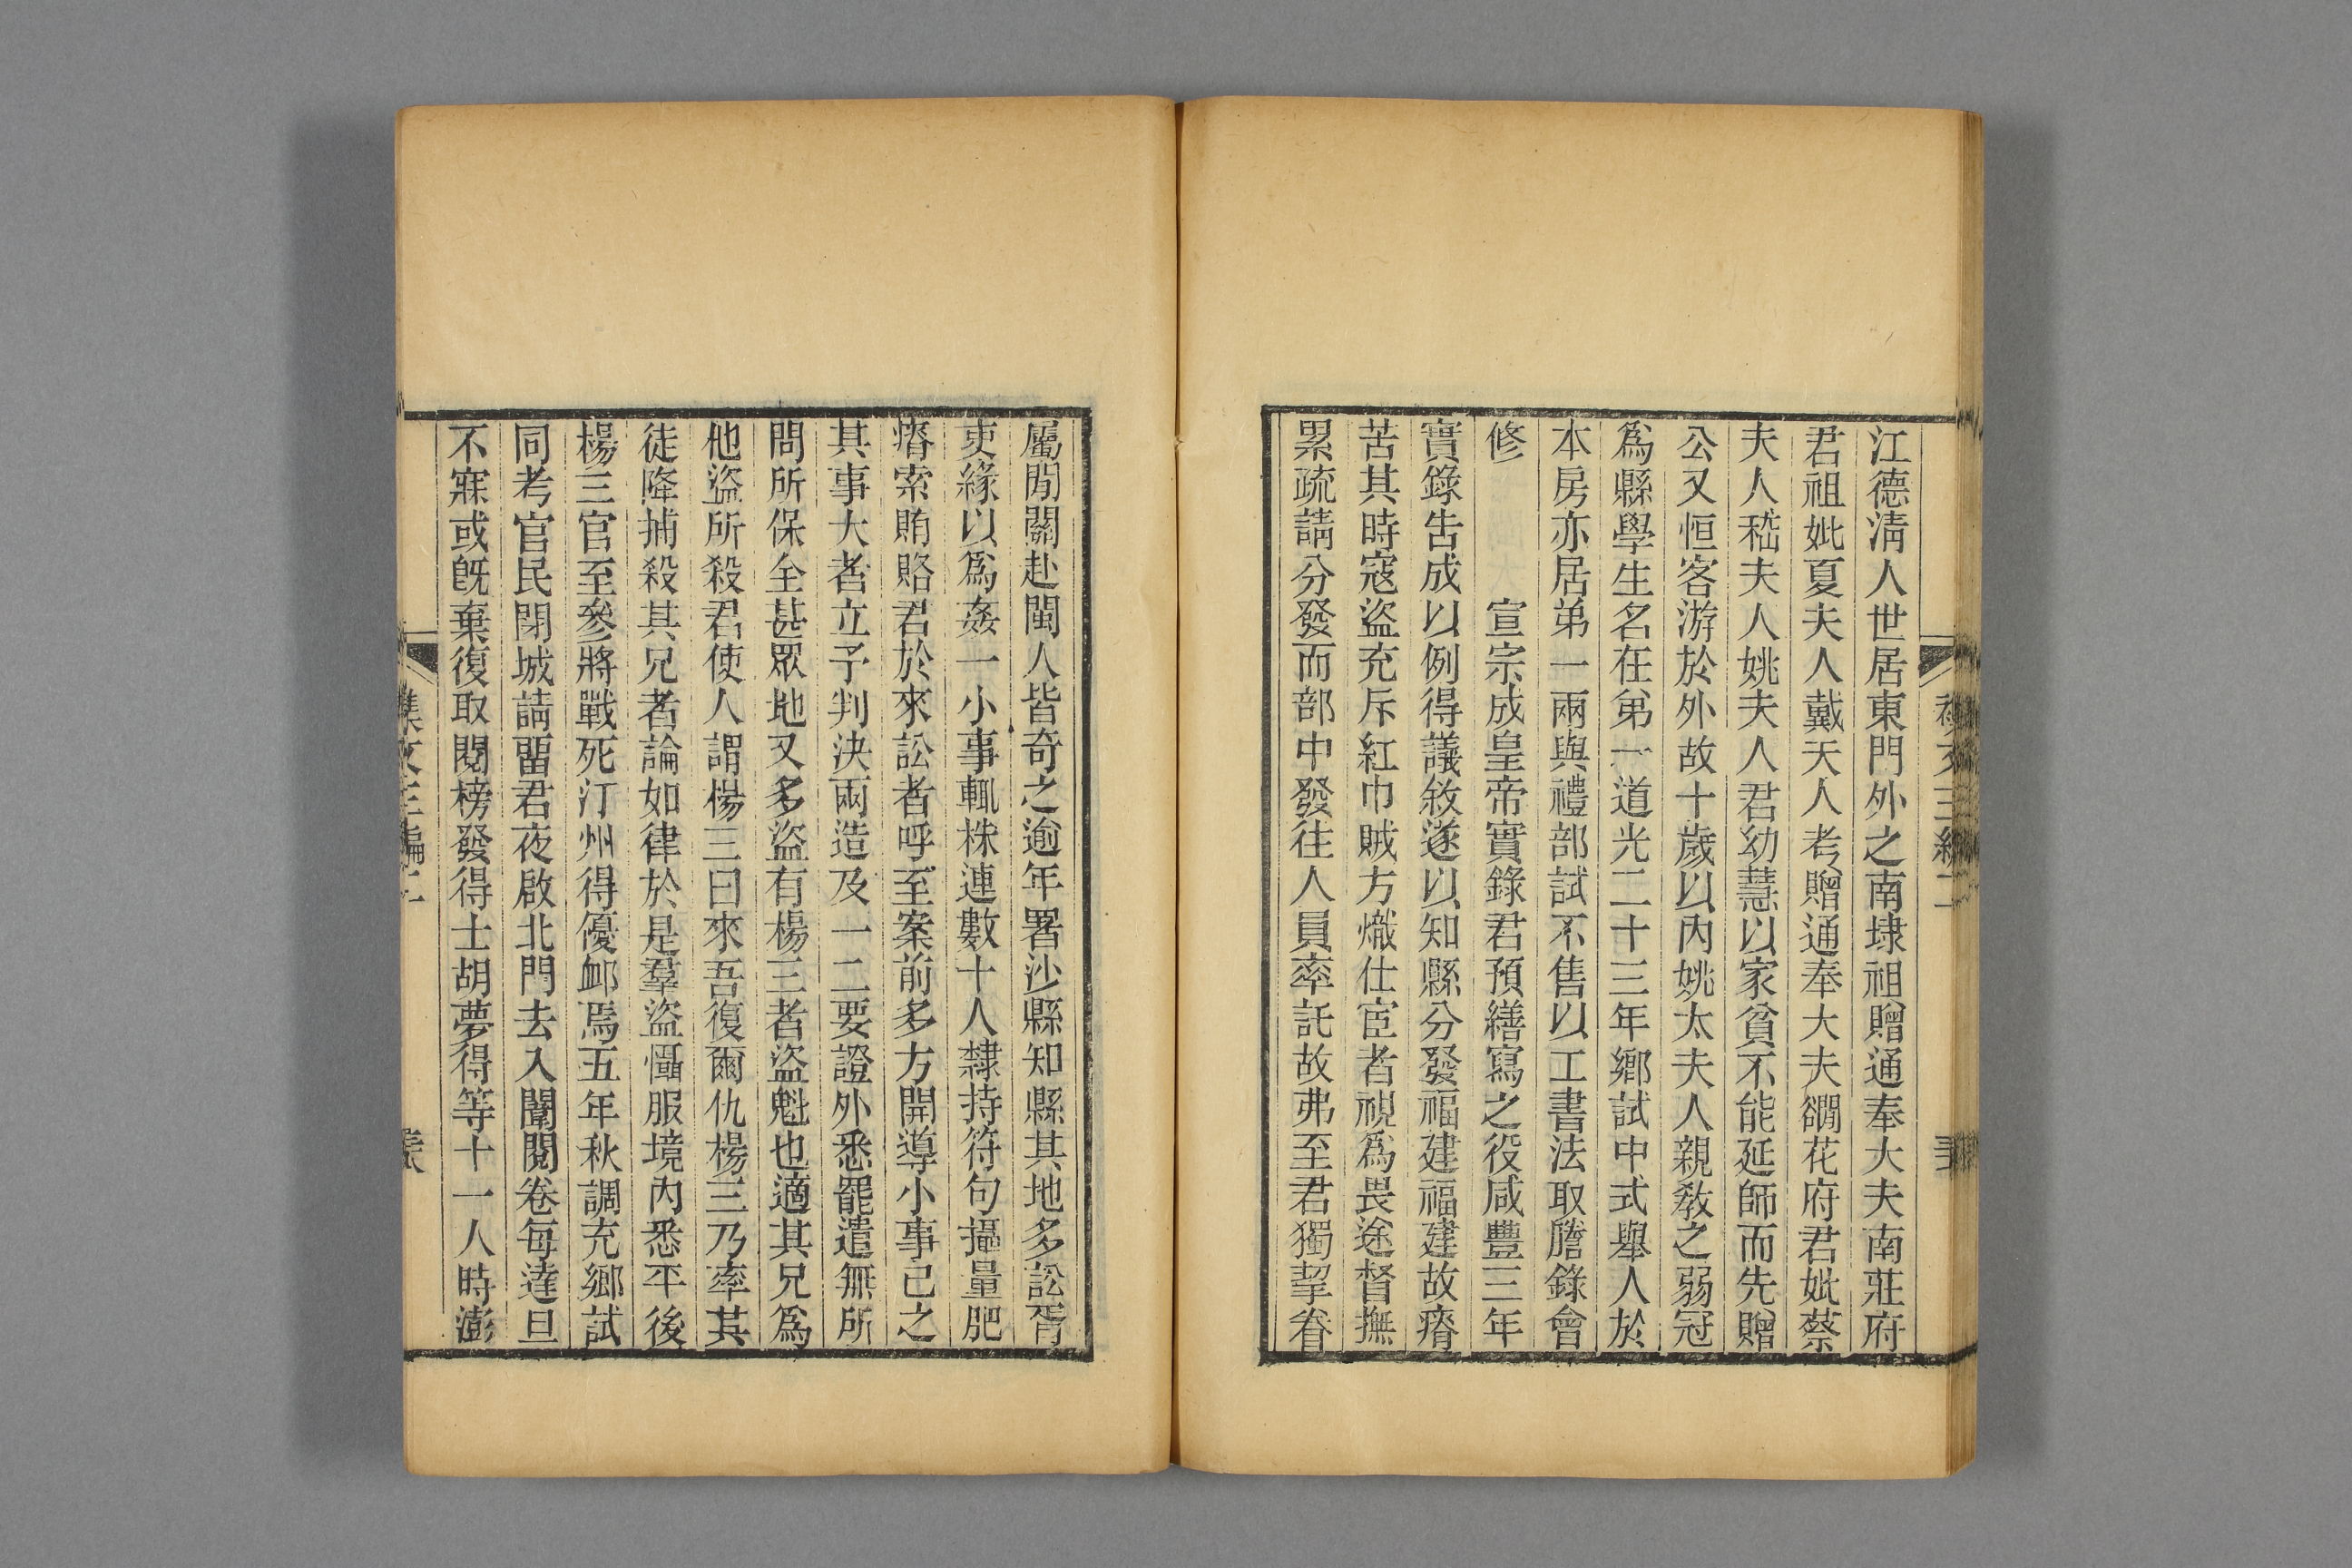 江德淸人世居東門外之南埭祖贈通奉大夫南莊府
君祖妣夏夫人戴夫人考贈通奉大夫礀花府君妣蔡
夫人嵇夫人姚夫人君幼慧以家貧不能延師而先贈
公又恒客游於外故十歲以內姚太夫人親敎之弱冠
爲縣學生名在弟一道光二十三年鄉試中式舉人於
本房亦居弟一兩與禮部試不售以工書法取謄錄會
修　　　宣宗成皇帝實錄君預繕寫之役咸豐三年
實錄告成以例得議敘遂以知縣分發福建福建故瘠
苦其時寇盜充斥紅巾賊方熾仕宦者視爲畏途督撫
累疏請分發而部中發往人員率託故弗至君獨挈眷
屬閒關赴閩人皆奇之逾年署沙縣知縣其地多訟胥
吏緣以爲姦一小事輒株連數十人隸持符句攝量肥
瘠索賄賂君於來訟者呼至案前多方開導小事已之
其事大者立予判決兩造及一二要證外悉罷遣無所
問所保全甚眾地又多盜有楊三者盜魁也適其兄爲
他盜所殺君使人謂楊三曰來吾復爾仇楊三乃率其
徒降捕殺其兄者論如律於是羣盜懾服境內悉平後
楊三官至參將戰死汀州得優䘏焉五年秋調充鄉試
同考官民閉城請畱君夜啟北門去入闈閱卷每達旦
不寐或旣棄復取閱榜發得士胡夢得等十一人時澎